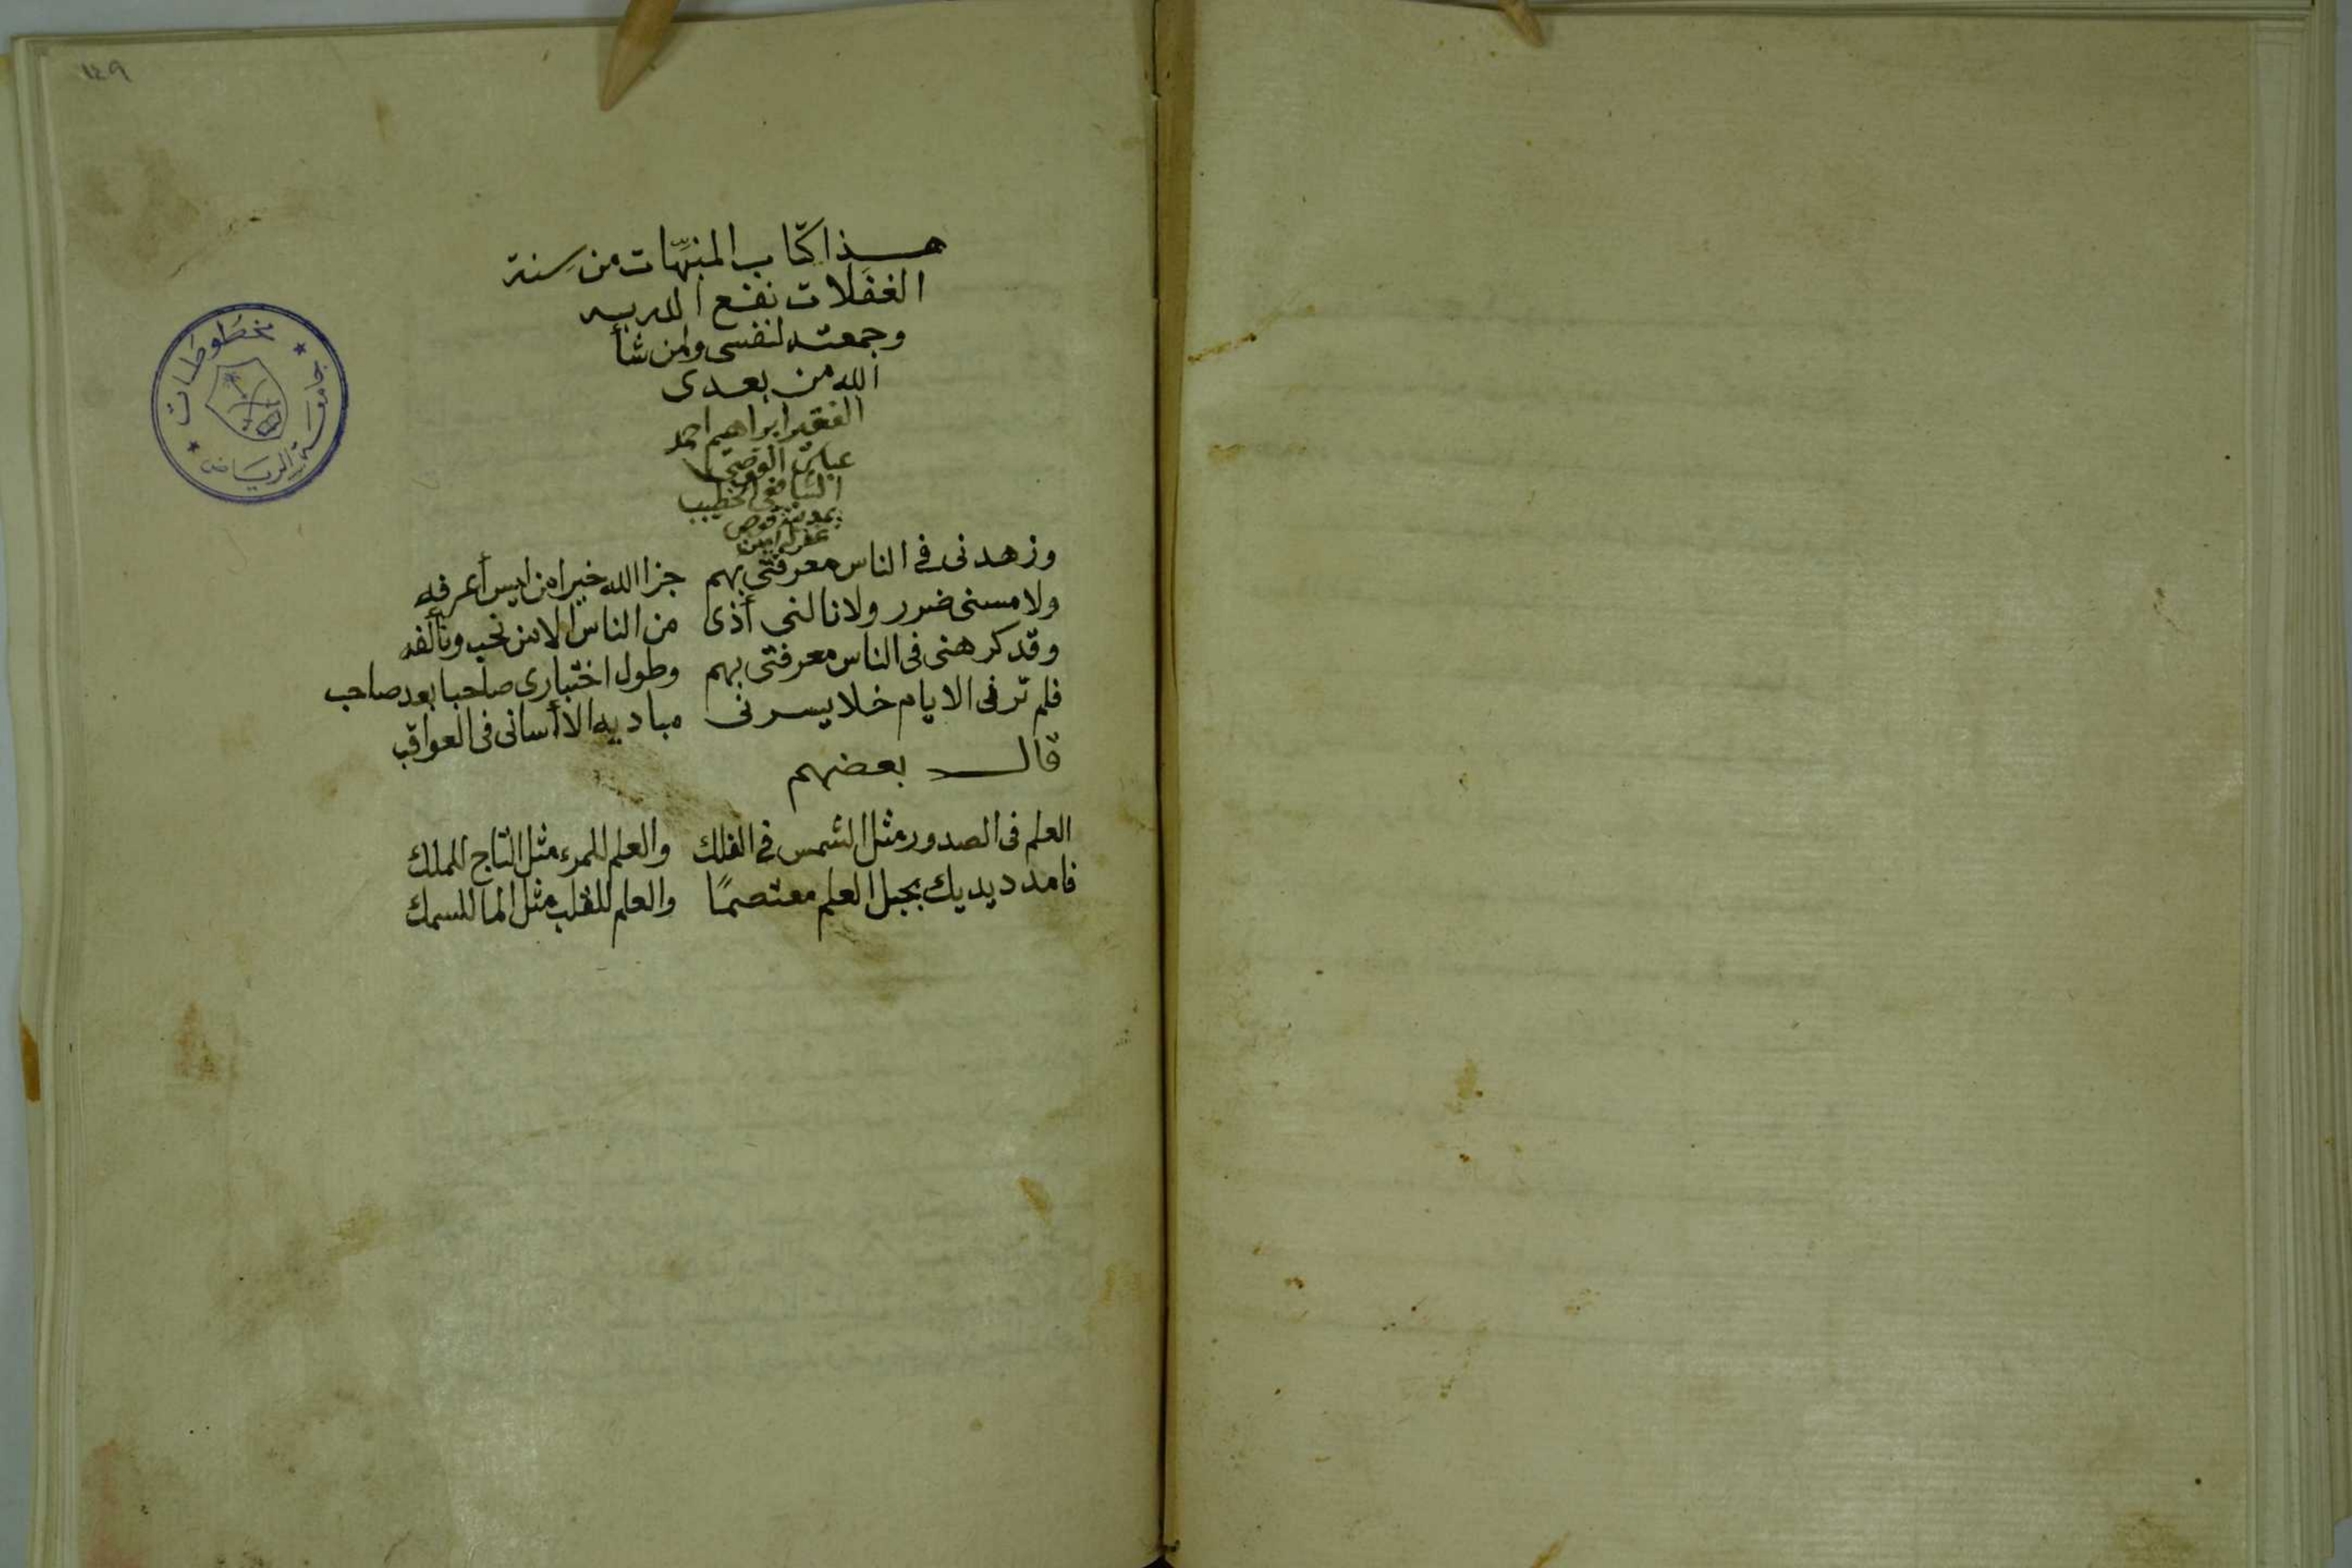 ١٤٩
هذا كتاب المنبهات من سِنة
الغفلات نفع الله به
وجمعته لنفسي ولمن شأ
الله من بعدي
الفقير ابراهيم احمد
الشافعي الخطيب
بمدينة قوص
غفر له امين
وزهدني في الناس معرفتي بهم جزا الله خيرا من ليس أعرفه
ولا مسني ضرر ولا نالني أذى من الناس الا من نحب ونألفه
وقد كرهني في الناس معرفتي بهم وطول اختباري صاحبا بعد صاحب
فلم تر في الايام خلا يسرني مباديه الا أساني في العواقب
قال بعضهم
العلم في الصدور مثل الشمس في الفلك والعلم للمرء مثل التاج للملك
فامدد يديك بحبل العلم معتصمًا والعلم للقلب مثل الما للسمك
مخطوطات
جامعة الرياض